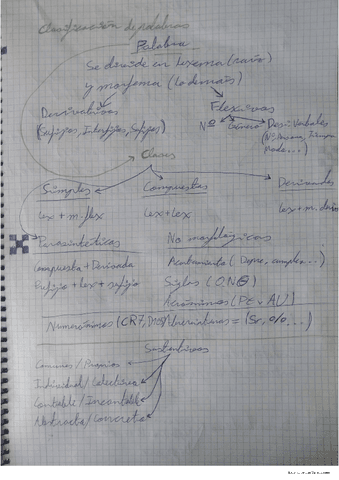 Clasificación de palabras
Palabra
Se divide en lexema (raíz)
y morfema (lo demás)
Derivativos
Flexivos
Nº Género Desiverbales
(Nº, Persona, Tiempo,
Modo...)
Clases
Simples Compuestas Derivadas
lex + m. flex lex + lex lex + m. deriv
Parasintéticas No morfológicas
Compuesta + Derivada Acortamiento (
Prefijo + lex + sufijo Siglas (ONG)
Acrónimos (
Numerónimos (CR7, Abreviaturas = (Sr, %...)
Sustantivos
Comunes / Propios
Individual / Colectivo
Contable / Incontable
Abstracto / Concreto